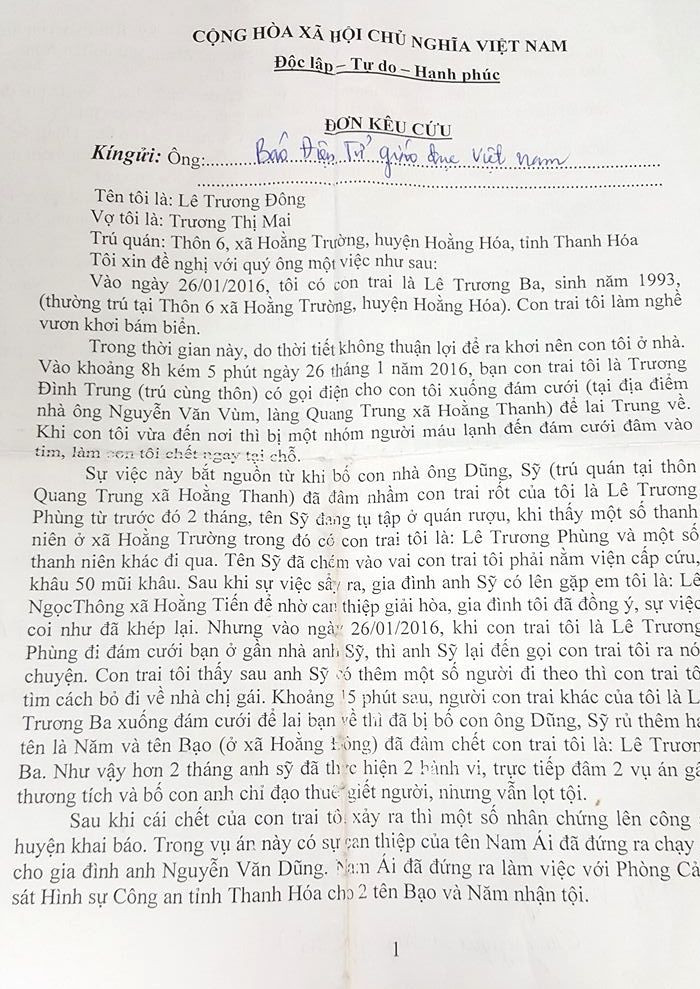 CỘNG HÒA XÃ HỘI CHỦ NGHĨA VIỆT NAM
Độc lập – Tự do – Hạnh phúc
ĐƠN KÊU CỨU
Kínhgửi: Ông:.......Báo Điện Tử giáo dục Việt nam.......
Tên tôi là: Lê Trương Đông
Vợ tôi là: Trương Thị Mai
Trú quán: Thôn 6, xã Hoằng Trường, huyện Hoằng Hóa, tỉnh Thanh Hóa
Tôi xin đề nghị với quý ông một việc như sau:
Vào ngày 26/01/2016, tôi có con trai là Lê Trương Ba, sinh năm 1993,
(thường trú tại Thôn 6 xã Hoằng Trường, huyện Hoằng Hóa). Con trai tôi làm nghề
vươn khơi bám biển.
Trong thời gian này, do thời tiết không thuận lợi để ra khơi nên con tôi ở nhà.
Vào khoảng 8h kém 5 phút ngày 26 tháng 1 năm 2016, bạn con trai tôi là Trương
Đình Trung (trú cùng thôn) có gọi điện cho con tôi xuống đám cưới (tại địa điểm
nhà ông Nguyễn Văn Vùm, làng Quang Trung xã Hoằng Thanh) để lai Trung về.
Khi con tôi vừa đến nơi thì bị một nhóm người máu lạnh đến đám cưới đâm vào
tim, làm con tôi chết ngay tại chỗ.
Sự việc này bắt nguồn từ khi bố con nhà ông Dũng, Sỹ (trú quán tại thôn
Quang Trung xã Hoằng Thanh) đã đâm nhầm con trai rốt của tôi là Lê Trương
Phùng từ trước đó 2 tháng, tên Sỹ đang tụ tập ở quán rượu, khi thấy một số thanh
niên ở xã Hoằng Trường trong đó có con trai tôi là: Lê Trương Phùng và một số
thanh niên khác đi qua. Tên Sỹ đã chém vào vai con trai tôi phải nằm viện cấp cứu,
khâu 50 mũi khâu. Sau khi sự việc sẩy ra, gia đình anh Sỹ có lên gặp em tôi là: Lê
NgọcThông xã Hoằng Tiến để nhờ can thiệp giải hòa, gia đình tôi đã đồng ý, sự việc
coi như đã khép lại. Nhưng vào ngày 26/01/2016, khi con trai tôi là Lê Trương
Phùng đi đám cưới bạn ở gần nhà anh Sỹ, thì anh Sỹ lại đến gọi con trai tôi ra nó
chuyện. Con trai tôi thấy sau anh Sỹ có thêm một số người đi theo thì con trai tô
tìm cách bỏ đi về nhà chị gái. Khoảng 15 phút sau, người con trai khác của tôi là L
Trương Ba xuống đám cưới để lai bạn về thì đã bị bố con ông Dũng, Sỹ rủ thêm ha
tên là Năm và tên Bạo (ở xã Hoằng Đông) đã đâm chết con trai tôi là: Lê Trươn
Ba. Như vậy hơn 2 tháng anh sỹ đã thực hiện 2 hành vi, trực tiếp đâm 2 vụ án gâ
thương tích và bố con anh chỉ đạo thuê giết người, nhưng vẫn lọt tội.
Sau khi cái chết của con trai tôi xảy ra thì một số nhân chứng lên công
huyện khai báo. Trong vụ án này có sự can thiệp của tên Nam Ái đã đứng ra chạy
cho gia đình anh Nguyễn Văn Dũng. Nam Ái đã đứng ra làm việc với Phòng Cả
sát Hình sự Công an tỉnh Thanh Hóa cho 2 tên Bạo và Năm nhận tội.
1